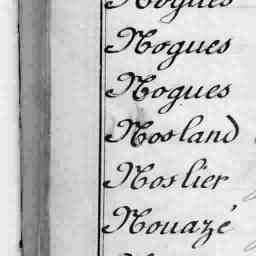 Nogues
Nogues
Nogues
Nosland
Noslier
Nouazé